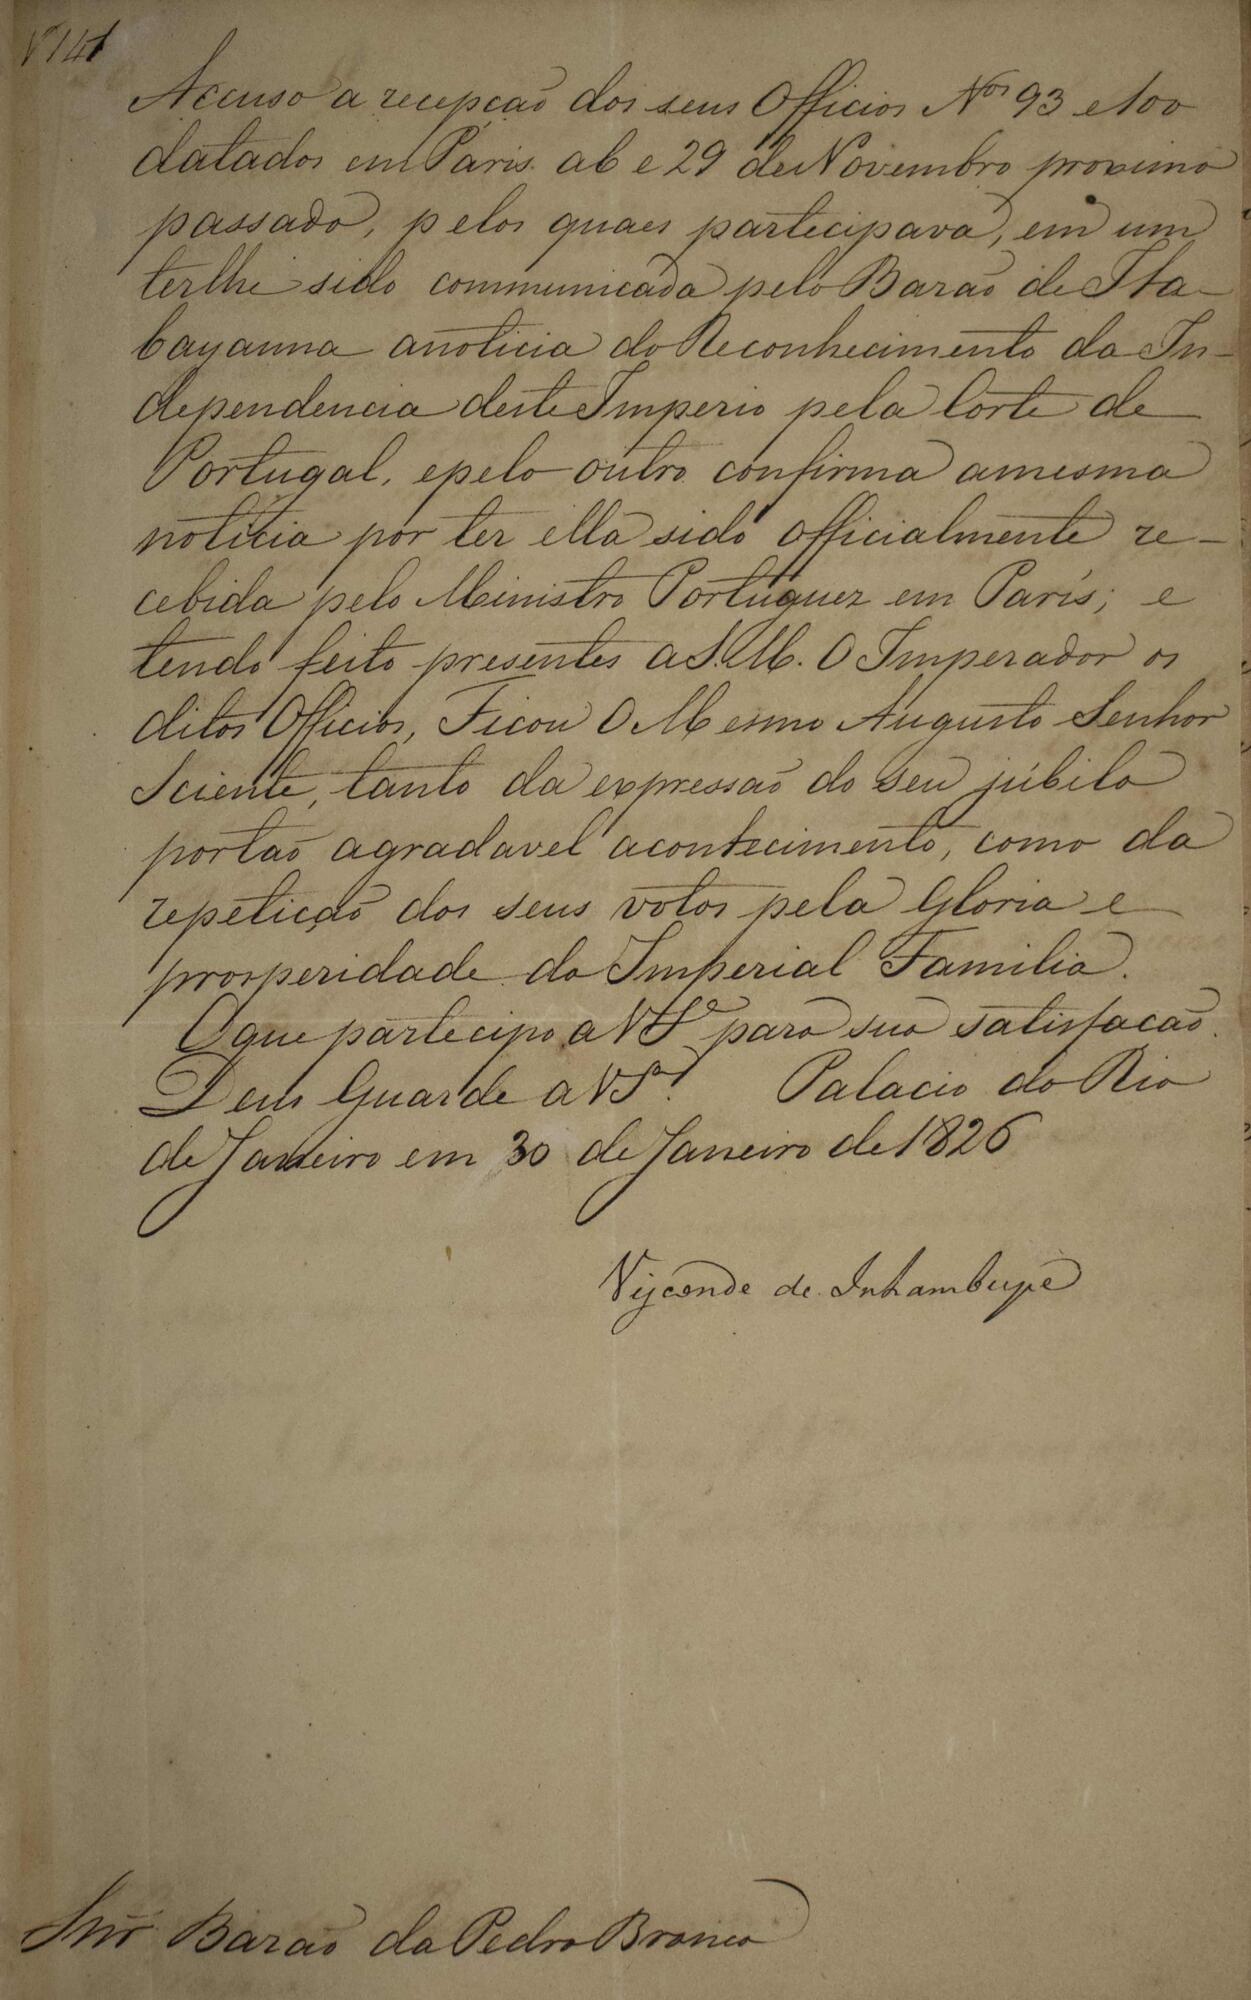 Nº 141
Accuso a recepção dos seus Officios Nos 93 e 100
datados em Paris a 6 e 29 de Novembro proximo
passado, pelos quaes partecipava, em um
terlhe sido communicada pelo Barão de Ita-
bayanna a noticia do Reconhecimento da In-
dependencia deste Imperio pela Corte de
Portugal, e pelo outro confirma a mesma
noticia por ter ella sido officialmente re-
cebida pelo Ministro Portuguez em París; e
tendo feito presentes a S. M. O Imperador os
ditos Officios, Ficou O Mesmo Augusto Senhor
Sciente, tanto da expressão do seu júbilo
por tão agradavel acontecimento, como da
repetição dos seus votos pela Gloria e
prosperidade da Imperial Familia.
O que partecipo a V Sª para sua satisfacão.
Deus Guarde a V Sª. Palacio do Rio
de Janeiro em 30 de Janeiro de 1826
Visconde de Inhambupe
Snr Barão da Pedra Branca